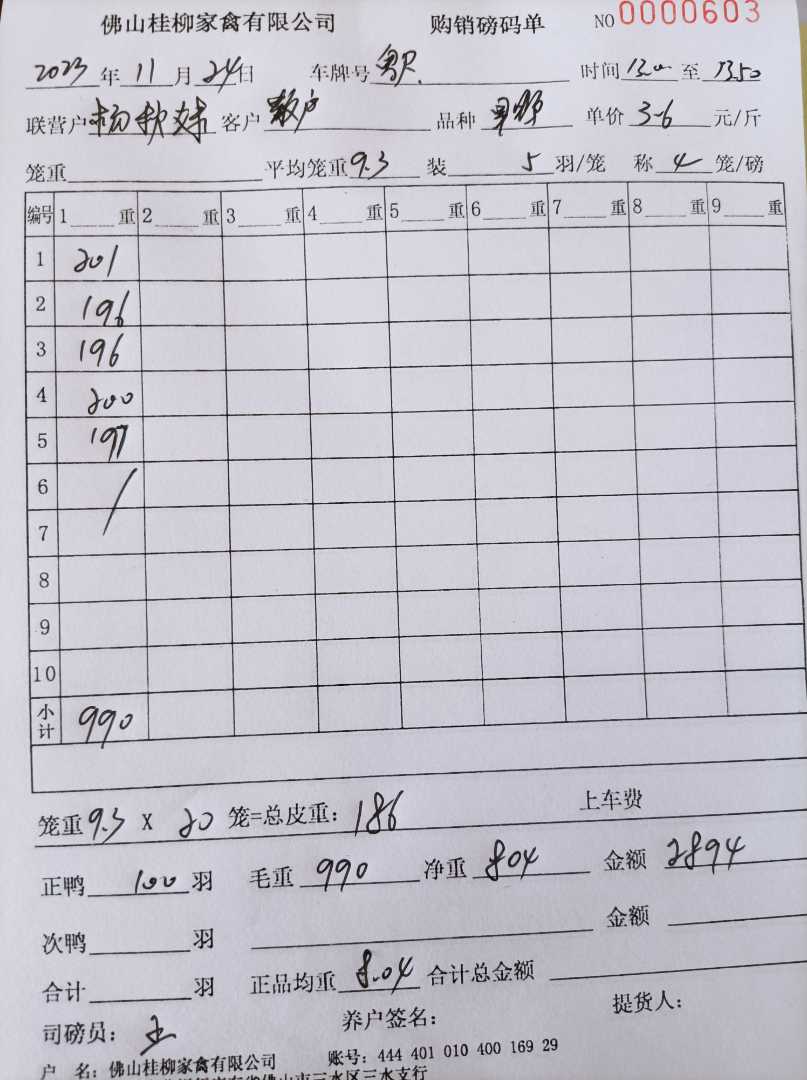 佛山桂柳家禽有限公司 购销磅码单 NO 0000603
2023年 11月 24日 车牌号 时间 13:00 至 1350
联营户 杨秋妹 客户 散户 品种 单价 3-6 元/斤
笼重 平均笼重 9.3 装 5 羽/笼 称 4 笼/磅
编号 1 重 2 重 3 重 4 重 5 重 6 重 7 重 8 重 9 重
1 201
2 196
3 196
4 200
5 197
6 /
7
8
9
10
小计 990
笼重 9.3 X 20 笼=总皮重: 186 上车费
正鸭 100 羽 毛重 990 净重 804 金额 2894
次鸭 羽 金额
合计 羽 正品均重 8.04 合计总金额
司磅员: 王 养户签名: 提货人:
户 名: 佛山桂柳家禽有限公司 账号: 444 401 010 400 169 29
佛山市三水区三水支行